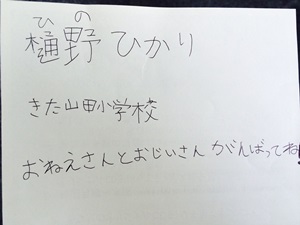 ひの
樋野ひかり
きた山田小学校
おねえさんとおじいさん がんばってね!